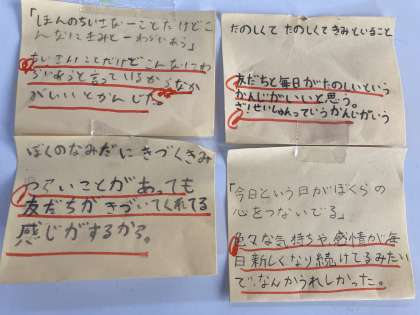 「ほんのちいさなーことだけどこ
んなにきみとーわらいあう」
ちいさいことだけどこんなにわ
らいあうと言っているからなか
がいいとかんじた。
たのしくて たのしくてきみといること
友だちと毎日がたのしいという
かんじがいいと思う。
ざ!せいしゅんっていうかんじがいう
ぼくのなみだにきづくきみ
つらいことがあっても
友だちがきづいてくれてる
感じがするから。
「今日という日がぼくらの
心をつないでる」
色々な気持ちや感情が毎
日新しくなり続けてるみたい
でなんかうれしかった。